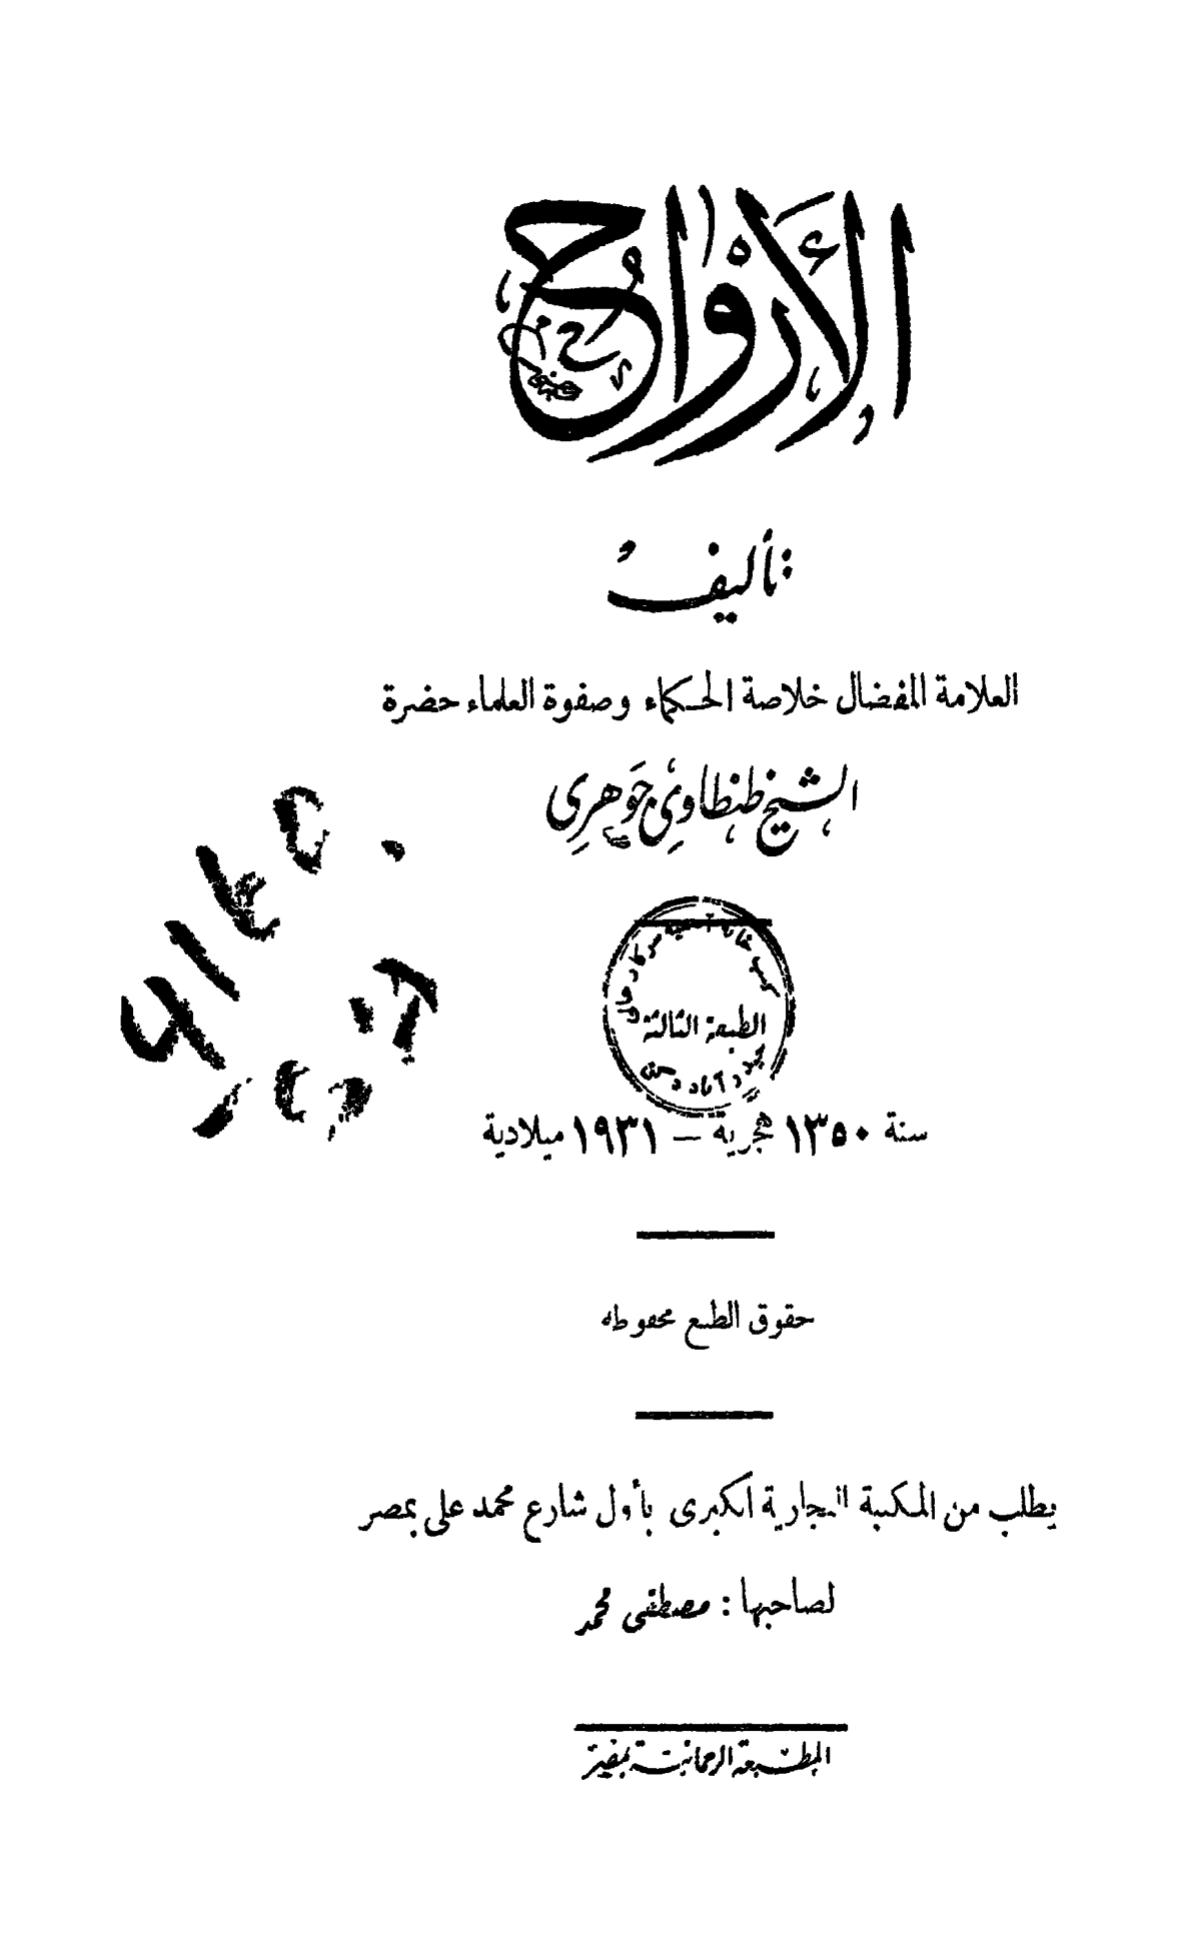 الأرواح
تأليف
العلامة المفضال خلاصة الحكماء وصفوة العلماء حضرة
الشيخ طنطاوي جوهري
الطبعة الثالثة
سنة ١٣٥٠ هجرية — ١٩٣١ ميلادية
حقوق الطبع محفوظة
يطلب من المكتبة التجارية الكبرى بأول شارع محمد على بمصر
لصاحبها : مصطفى محمد
المطبعة الرحمانية بمصر